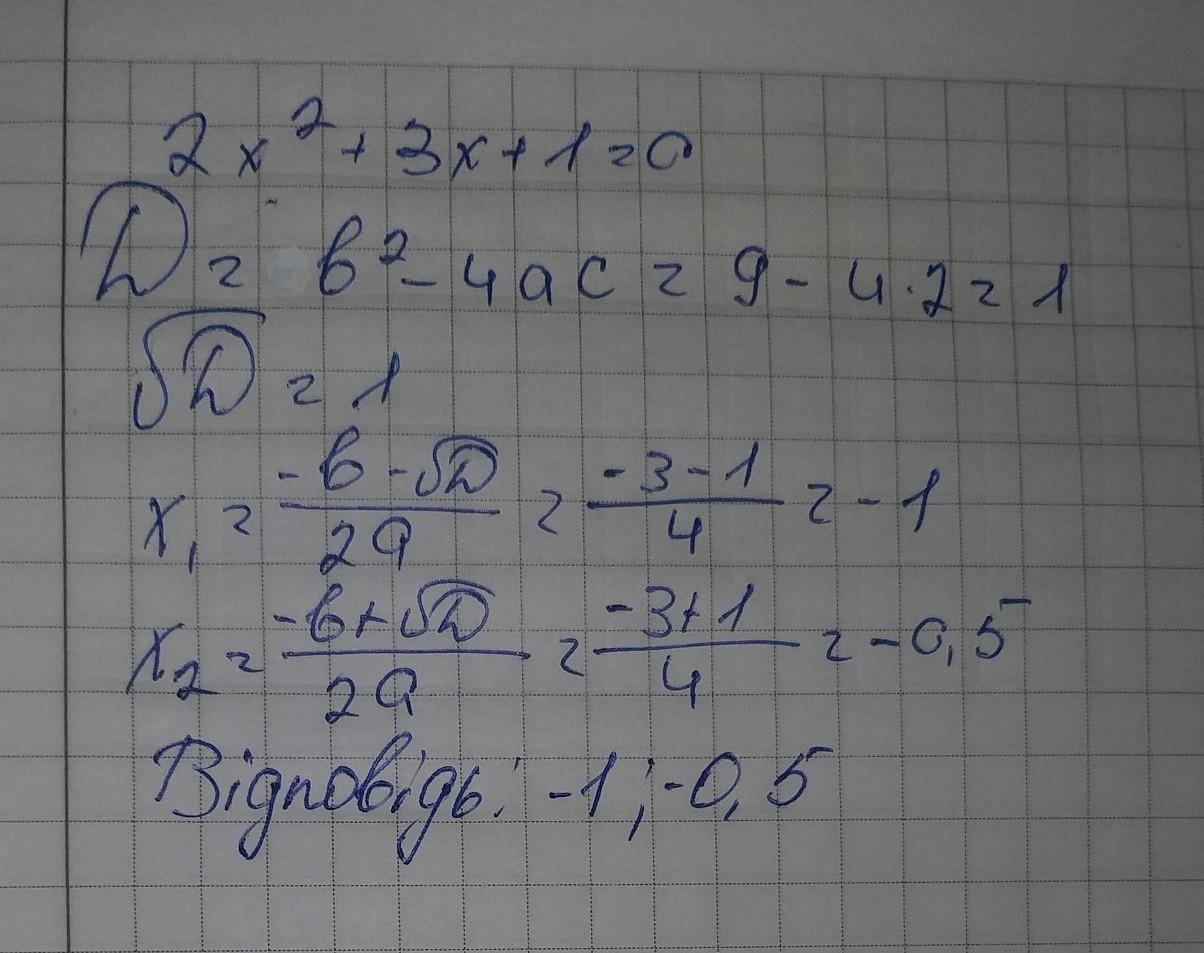 2x² + 3x + 1 = 0
D = b² - 4ac = 9 - 4·2 = 1
√D = 1
x₁ = (-b - √D)/(2a) = (-3 - 1)/4 = -1
x₂ = (-b + √D)/(2a) = (-3 + 1)/4 = -0,5
Відповідь: -1; -0,5